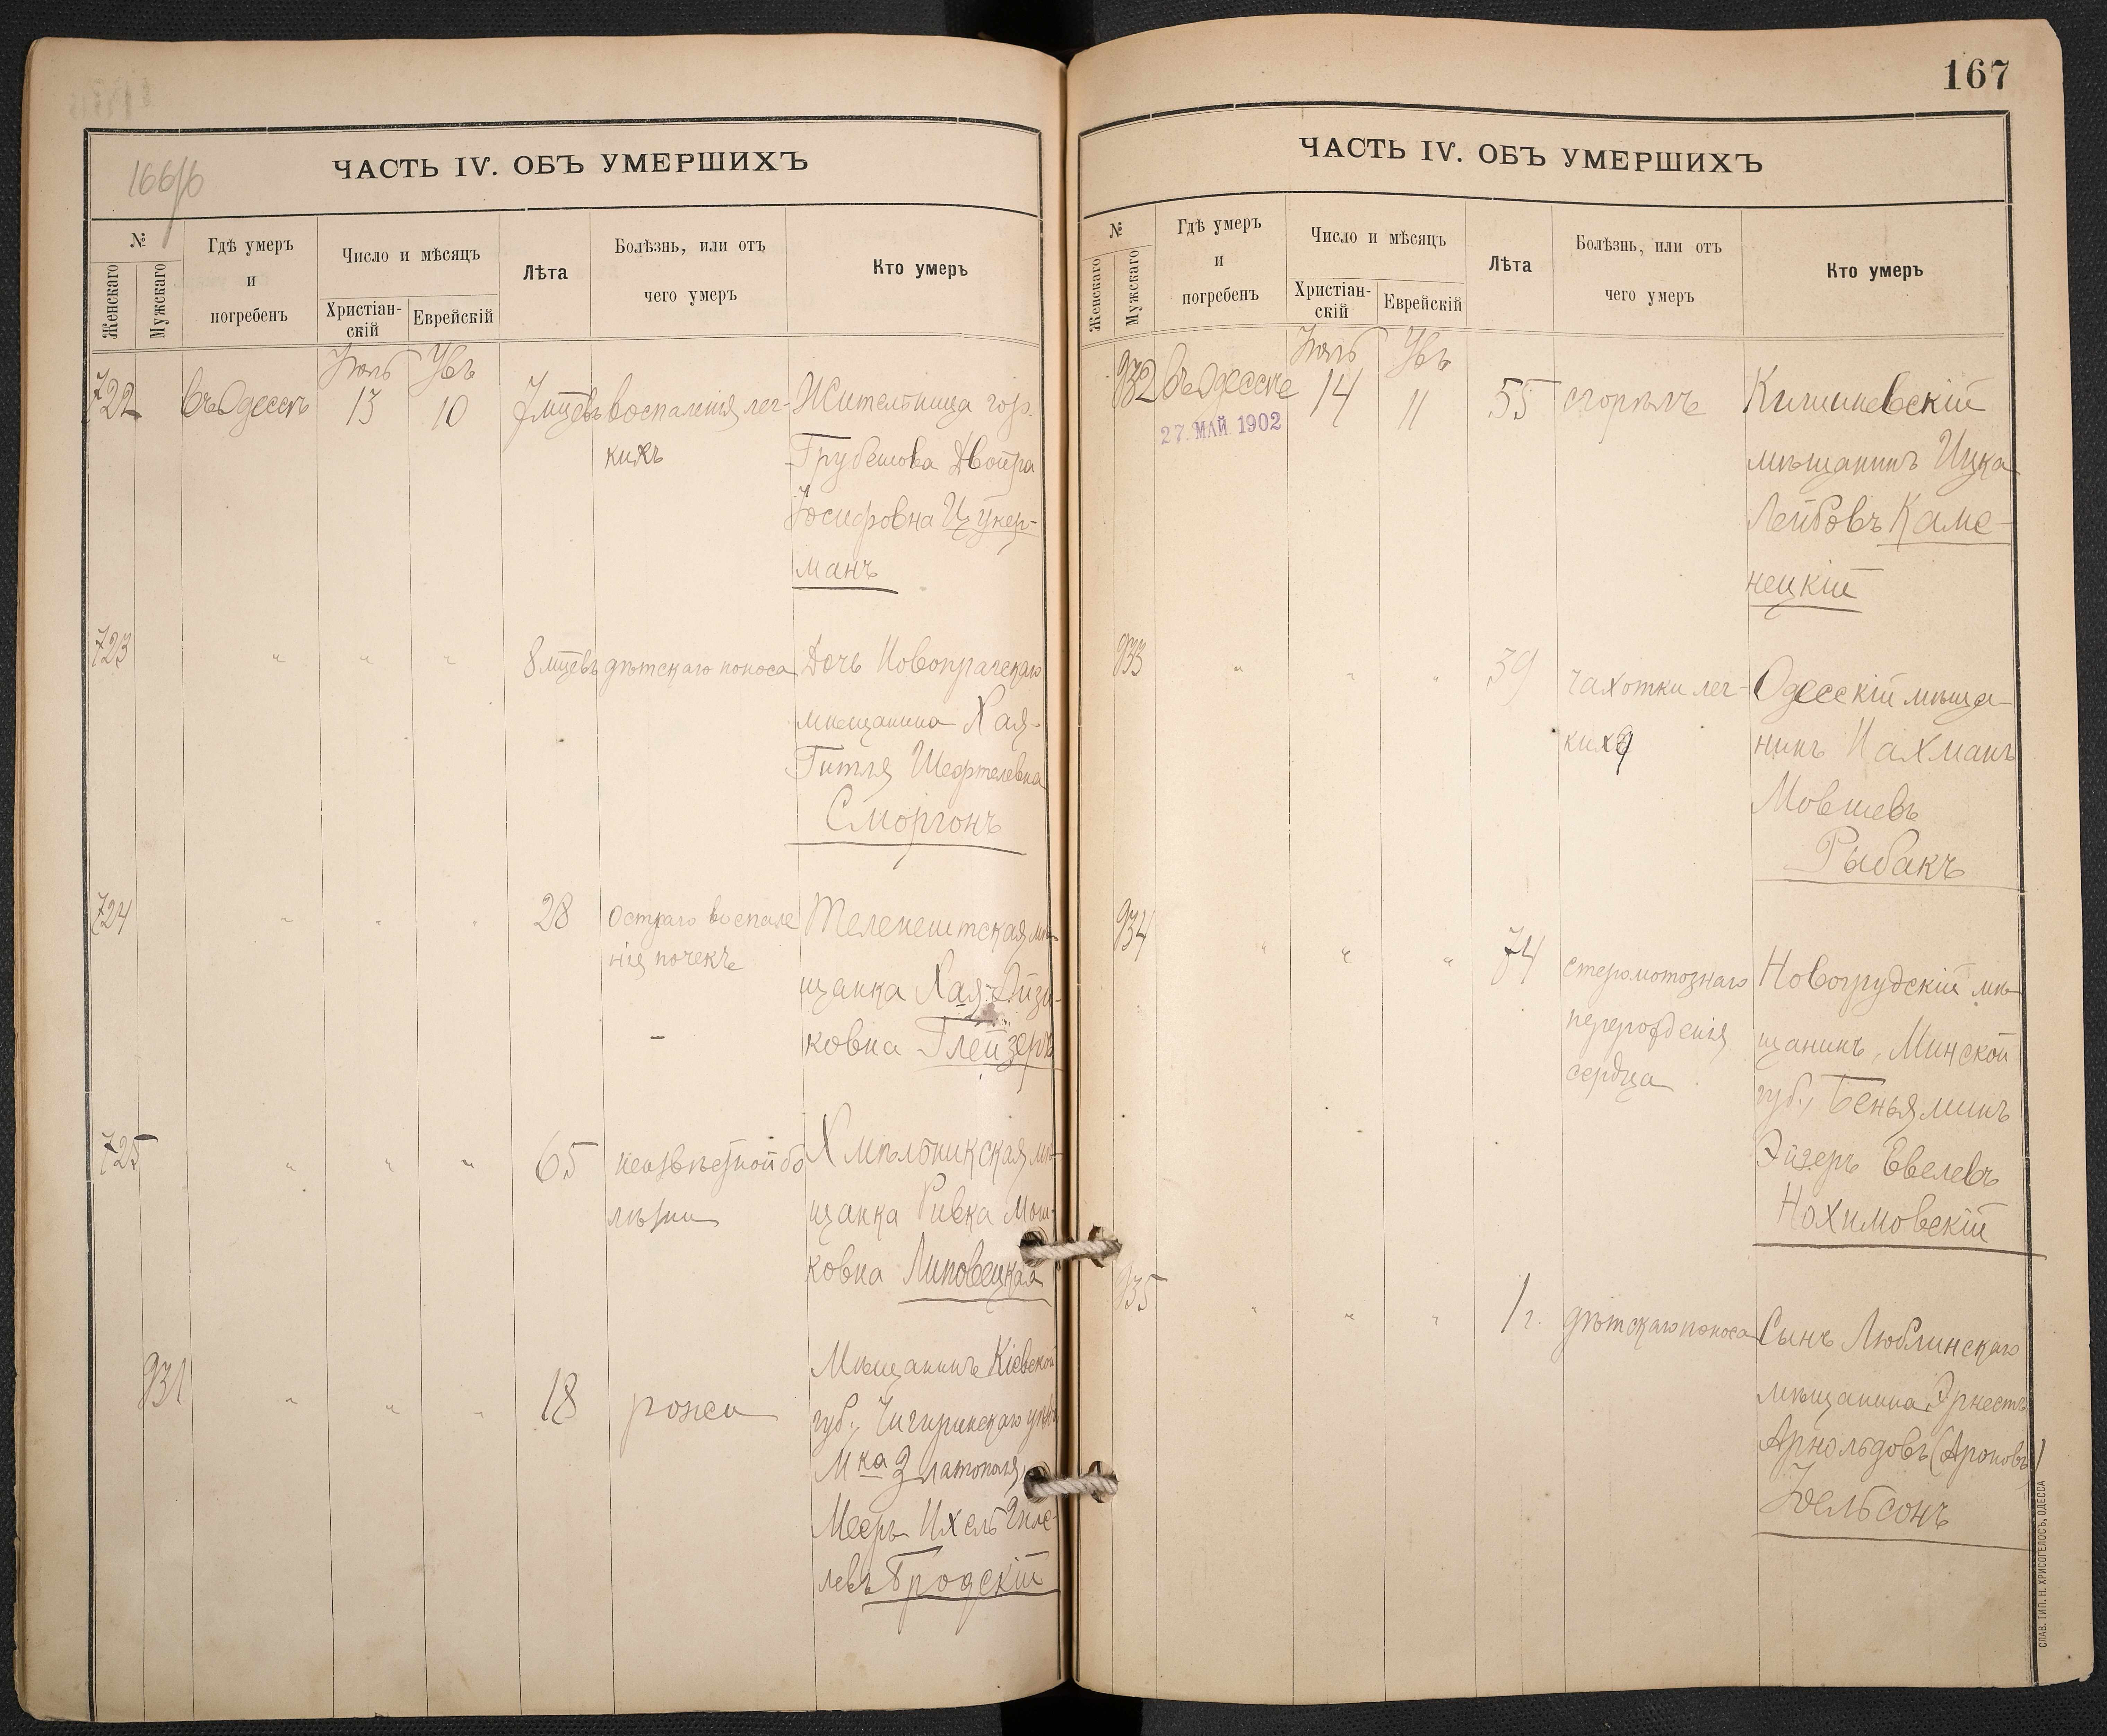 166/б
ЧАСТЬ IV. ОБЪ УМЕРШИХЪ
№
Женскаго
Мужскаго
Гдѣ умеръ
и
погребенъ
Число и мѣсяцъ
Христіан-
скій
Еврейскій
Лѣта
Болѣзнь, или отъ
чего умеръ
Кто умеръ
722
въ Одессѣ
Іюль
13
Увъ
10
7 мцевъ
воспаленія лег-
кихъ
Жительница гор.
Грубешова Двойра
Іосифовна Цукер-
манъ
723
" " "
8 мцевъ
дѣтскаго поноса
Дочь Новопрагскаго
мѣщанина Хая-
Гитля Шефтелевна
Сморгонъ
724
" " "
28
остраго воспале
нія почекъ
Теленештская мѣ-
щанка Хая Айзи-
ковна Глейзеръ
725
" " "
65
неизвѣстной бо
лѣзни
Хмѣльникская мѣ-
щанка Ривка Мош-
ковна Липовецкая
931
" " "
18
рожи
Мѣщанинъ Кіевской
губ., Чигиринскаго уѣз.
Мка Златополя,
Мееръ Ихель
левъ Бродскій
167
ЧАСТЬ IV. ОБЪ УМЕРШИХЪ
№
Женскаго
Мужскаго
Гдѣ умеръ
и
погребенъ
Число и мѣсяцъ
Христіан-
скій
Еврейскій
Лѣта
Болѣзнь, или отъ
чего умеръ
Кто умеръ
932
въ Одессѣ
27. МАЙ 1902
Іюль
14
Увъ
11
55
сгорѣлъ
Кишиневскій
мѣщанинъ Ицка
Лейбовъ Каме-
нецкій
933
" " "
39
чахотки лег-
кихъ
Одесскій мѣща-
нинъ Нахманъ
Мовшевъ
Рыбакъ
934
" " "
74
перерожденія
сердца
Новогрудскій мѣ-
щанинъ, Минской
губ., Беньяминъ
Эйзеръ Евелевъ
Нохимовскій
935
" " "
1 г.
дѣтскаго поноса
Сынъ Люблинскаго
мѣщанина Эрнестъ
Арнольдовъ (Ароновъ)
Іоельсонъ
СЛАВ. ТИП. Н. ХРИСОГЕЛОСЪ, ОДЕССА